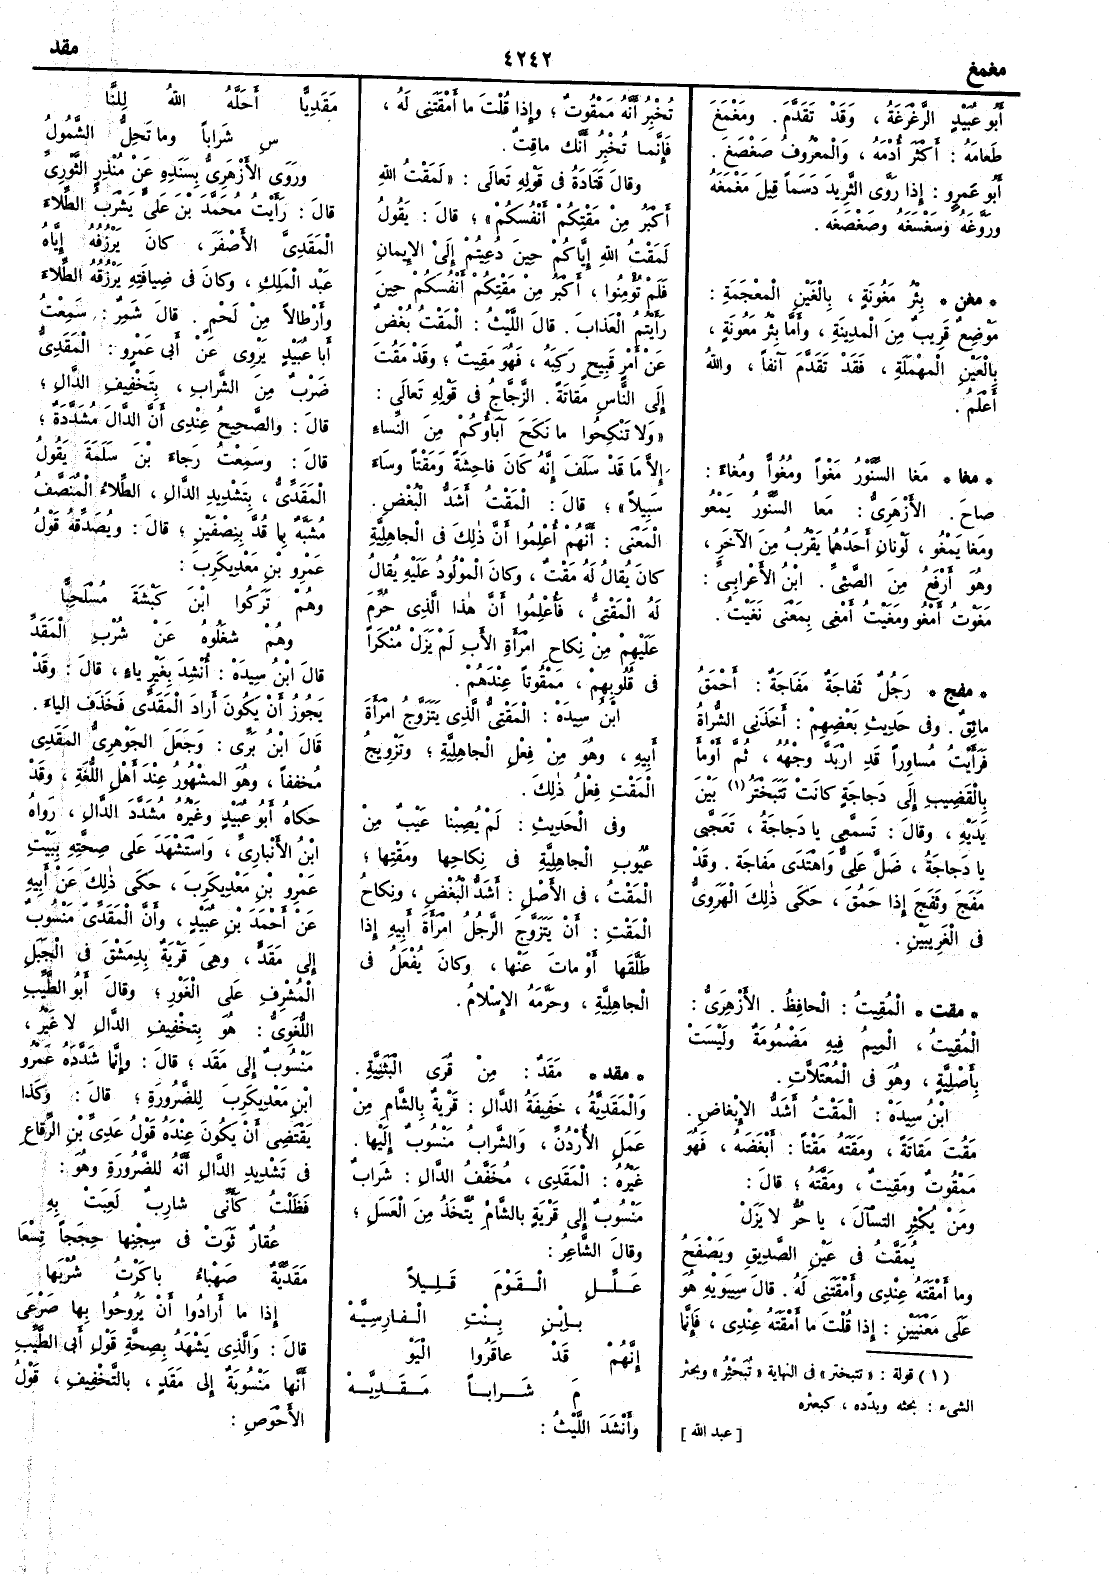 مغمغ
٤٢٤٢
مقد
أَبُو عُبَيْدٍ الرَّغْرَغَةُ ، وَقَدْ تَقَدَّمَ . ومَغْمَغَ
طَعامَهُ : أَكْثَرَ أُدْمَهُ ، وَالْمَعْرُوفُ صَغْصَغَ .
أَبُو عَمْرٍو : إِذا رَوَّى الثَّرِيدَ دَسَماً قِيلَ مَغْمَغَهُ
وَرَوَّغَهُ وسَغْسَغَهُ وصَغْصَغَهُ .
• مغن • بِئْرُ مَغُونَةَ ، بِالْغَيْنِ الْمعْجَمَةِ :
مَوْضِعٌ قَرِيب مِنَ الْمدِينَةِ ، وَأَمَّا بِئْرُ مَعُونَةَ ،
بِالْعَيْنِ الْمُهْمَلَةِ ، فَقَدْ تَقَدَّمَ آنفاً ، واللهُ
أَعْلَمُ .
• مغا • مَغا السِّنَّوْرُ مَغْواً ومُغُوّاً ومُغاءً :
صاحَ . الأَزْهَرِىُّ : مَعا السِّنَّوْرُ يَمْعُو
ومَغا يَمْغُو ، لَوْنانِ أَحَدُهُما يَقْرُبُ مِنَ الآخَرِ ،
وهُوَ أَرْفَعُ مِنَ الصَّئِىِّ . ابْنُ الأَعْرابِىِّ :
مَغَوْتُ أَمْغُو ومَغَيْتُ أَمْغِى بِمَعْنَى نَغَيْتُ .
• مفج • رَجُلٌ ثَفاجَةٌ مَفاجَةٌ : أَحْمَقُ
مائِقٌ . وفى حَدِيثِ بَعْضِهِمْ : أَخَذَنِى الشُّراةُ
فَرَأَيْتُ مُساوِراً قَدِ ارْبَدَّ وجْهُهُ ، ثُمَّ أَوْمأَ
بِالْقَضِيبِ إِلَى دَجاجَةٍ كانَتْ تَتَبَخْتَرُ (١) بَيْنَ
يَدَيْهِ ، وقالَ : تَسَمَّعِى يا دَجاجَةُ ، تَعَجَّبِى
يا دَجاجَةُ ، ضَلَّ عَلىٌّ وَاهْتَدَى مَفاجَة . وقَدْ
مَفَجَ وثَفَجَ إِذا حَمُقَ ، حَكَى ذٰلِكَ الْهَرَوِىُّ
فى الْغَرِيبَيْنِ .
• مقت • الْمُقِيتُ : الْحافِظُ . الأَزْهَرِىُّ :
الْمُقِيتُ ، الْمِيمُ فِيهِ مَضْمُومَةٌ ولَيْسَتْ
بِأَصْلِيَّةٍ ، وهُوَ فى الْمُعْتَلَّاتِ .
ابْنُ سِيدَهْ : الْمَقْتُ أَشَدُّ الإِبْغاضِ .
مَقُتَ مَقاتَةً ، ومَقَتَهُ مَقْتاً : أَبْغَضَهُ ، فَهُوَ
مَمْقُوتٌ ومَقِيتٌ ، ومَقَّتَهُ ؛ قالَ :
ومَنْ يُكْثِرِ التسآلَ ، يا حُرُّ لا يَزَلْ
يُمَقَّتُ فى عَيْنِ الصَّدِيقِ ويَصْفَحُ
وما أَمْقَتَهُ عِنْدِى وأَمْقَتَنِى لَهُ . قالَ سِيبَوَيْهِ هُوَ
عَلَى مَعْنَيَيْنِ : إِذا قُلْتَ ما أَمْقَتَهُ عِنْدِى ، فَإِنَّما
(١) قوله : «تتبختر» فى النهاية «تُبَحْثِرُ» وبحثر
الشىء : بحثه وبدّده ، كبعثره
[ عبد الله ]
تُخْبِرُ أَنَّهُ مَمْقُوتٌ ؛ وإِذا قُلْتَ ما أَمْقَتَنِى لَهُ ،
فَإِنَّما تُخْبِرُ أَنَّكَ ماقِتٌ .
وقالَ قَتادَةُ فى قَوْلِهِ تَعالَى : «لَمَقْتُ اللهِ
أَكْبَرُ مِنْ مَقْتِكُمْ أَنْفُسَكُمْ» ؛ قالَ : يَقُولُ
لَمَقْتُ اللهِ إِيَّاكُمْ حِينَ دُعِيتُمْ إِلَىْ الإِيمانِ
فَلَمْ تُؤْمِنُوا ، أَكْبَرُ مِنْ مَقْتِكُمْ أَنْفُسَكُمْ حِينَ
رَأَيْتُمُ الْعَذابَ . قالَ اللَّيْثُ : الْمَقْتُ بُغْضٌ
عَنْ أَمْرٍ قَبِيحٍ رَكِبَهُ ، فَهُوَ مَقِيتٌ ؛ وقَدْ مَقُتَ
إِلَى النَّاسِ مَقاتَةً . الزَّجَّاجُ فى قَوْلِهِ تَعالَى :
«وَلا تَنْكِحُوا ما نَكَحَ آباؤُكُمْ مِنَ النِّساءِ
إِلاَّ مَا قَدْ سَلَفَ إِنَّهُ كَانَ فاحِشَةً وَمَقْتاً وَساءَ
سَبِيلاً» ؛ قالَ : الْمَقْتُ أَشَدُّ الْبُغْضِ .
الْمَعْنَى : أَنَّهُمْ أُعْلِمُوا أَنَّ ذٰلِكَ فى الْجاهِلِيَّةِ
كانَ يُقالُ لَهُ مَقْتٌ ، وكانَ الْمَوْلُودُ عَلَيْهِ يُقالُ
لَهُ الْمَقْتِىُّ ، فَأُعْلِمُوا أَنَّ هٰذا الَّذِى حُرِّمَ
عَلَيْهِمْ مِنْ نِكاحِ امْرَأَةِ الأَبِ لَمْ يَزَلْ مُنْكَراً
فى قُلُوبِهِمْ ، مَمْقُوتاً عِنْدَهُمْ .
ابْنُ سِيدَهْ : الْمَقْتِىُّ الَّذِى يَتَزَوَّجُ امْرَأَةَ
أَبِيهِ ، وهُوَ مِنْ فِعْلِ الْجاهِلِيَّةِ ؛ وتَزْوِيجُ
الْمَقْتِ فِعْلُ ذٰلِكَ .
وفى الْحَدِيثِ : لَمْ يُصِبْنا عَيْبٌ مِنْ
عُيُوبِ الْجاهِلِيَّةِ فى نِكاحِها ومَقْتِها ؛
الْمَقْتُ ، فى الأَصْلِ : أَشَدُّ الْبُغْضِ ، ونِكاحُ
الْمَقْتِ : أَنْ يَتَزَوَّجَ الرَّجُلُ امْرَأَةَ أَبِيهِ إِذا
طَلَّقَها أَوْ ماتَ عَنْها ، وكانَ يُفْعَلُ فى
الْجاهِلِيَّةِ ، وحَرَّمَهُ الإِسْلامُ .
• مقد • مَقَدٌ : مِنْ قُرَى الْبَثَنِيَّةِ .
وَالْمَقَدِيَّةُ ، خَفِيفَةُ الدَّالِ : قَرْيَةٌ بِالشَّامِ مِنْ
عَمَلِ الأُرْدُنِّ ، وَالشَّرابُ مَنْسُوبٌ إِلَيْها .
غَيْرُهُ : الْمَقَدِى ، مُخَفَّفُ الدَّالِ : شَرابٌ
مَنْسُوبٌ إِلَى قَرْيَةٍ بِالشَّامِ يُتَّخَذُ مِنَ الْعَسَلِ ؛
وقالَ الشَّاعِرُ :
عَــلِّــلِ الْــقَوْمَ قَــلِــيلاً
بـِـابْنِ بِــنْتِ الْــفارِسِيَّهْ
إِنَّهُمْ قَدْ عاقَرُوا الْيَوْ
مَ شَــرابــاً مَــقَــدِيَّــهْ
وأَنْشَدَ اللَّيْثُ :
مَقَدِيًّا أَحَلَّهُ اللهُ لِلنَّا
سِ شَراباً وما تَحِلُّ الشَّمُولُ
ورَوَى الأَزْهَرِىُّ بِسَنَدِهِ عَنْ مُنْذِرٍ الثَّوْرِىِّ
قالَ : رَأَيْتُ مُحَمَّدَ بْنَ عَلِىٍّ يَشْرَبُ الطِّلاءَ
الْمَقَدِىَّ الأَصْفَرَ ، كانَ يَرْزُقُهُ إِيَّاهُ
عَبْدُ الْمَلِكِ ، وكانَ فى ضِيافَتِهِ يَرْزُقُهُ الطِّلاءَ
وأَرْطالاً مِنْ لَحْمٍ . قالَ شَمِرٌ : سَمِعْتُ
أَبا عُبَيْدٍ يَرْوِى عَنْ أَبِى عَمْرٍو : الْمَقَدِىُّ
ضَرْبٌ مِنَ الشَّرابِ ، بِتَخْفِيفِ الدَّالِ ؛
قالَ : والصَّحِيحُ عِنْدِى أَنَّ الدَّالَ مُشَدَّدَةٌ ؛
قالَ : وسَمِعْتُ رَجاءَ بْنَ سَلَمَةَ يَقُولُ
الْمَقَدِّىُّ ، بِتَشْدِيدِ الدَّالِ ، الطِّلاءُ الْمُنَصَّفُ
مُشَبَّهٌ بِما قُدَّ بِنِصْفَيْنِ ؛ قالَ : ويُصَدِّقُهُ قَوْلُ
عَمْرِو بْنِ مَعْدِيكَرِبَ :
وهُمْ تَرَكوا ابْنَ كَبْشَةَ مُسْلَحِبًّا
وهُمْ شَغَلُوهُ عَنْ شُرْبِ الْمَقَدِّ
قالَ ابْنُ سِيدَهْ : أُنْشِدَ بِغَيْرِ ياءٍ ، قالَ : وقَدْ
يَجُوزُ أَنْ يَكُونَ أَرادَ الْمَقَدِّى فَحَذَفَ الياءَ .
قالَ ابْنُ بَرِّى : وَجَعَلَ الجَوْهَرِىُّ المَقَدِى
مُخففاً ، وهُوَ المشْهُورُ عِنْدَ أَهْلِ اللُّغَةِ ، وقَدْ
حَكاهُ أَبُو عُبَيْدٍ وغَيْرُهُ مُشَدَّدَ الدَّالِ ، رَواهُ
ابْنُ الأَنْبارِىِّ ، وَاسْتَشْهَدَ عَلَى صِحَّتِهِ بِبَيْتِ
عَمْرِو بْنِ مَعْدِيكَرِبَ ، حَكَى ذٰلِكَ عَنْ أَبِيهِ
عَنْ أَحْمَدَ بْنِ عُبَيْدٍ ، وأَنَّ الْمَقَدِّىَّ مَنْسُوبٌ
إِلى مَقَدٍّ ، وهِىَ قَرْيَةٌ بِدِمَشْقَ فى الْجَبَلِ
الْمُشْرِفِ عَلَى الْغَوْرِ ؛ وقالَ أَبُو الطَّيِّبِ
اللُّغَوِىُّ : هُوَ بِتَخْفِيفِ الدَّالِ لا غَيْرُ ،
مَنْسُوبٌ إِلى مَقَد ؛ قالَ : وإِنَّما شَدَّدَهُ عَمْرُو
ابْنِ مَعْدِيكَرِبَ لِلضَّرُورَةِ ؛ قالَ : وَكَذا
يَقْتَضِى أَنْ يَكُونَ عِنْدَهُ قَوْلُ عَدِىِّ بْنِ الرِّقاعِ
فى تَشْدِيدِ الدَّالِ أَنَّهُ للضَّرُورَةِ وهُوَ :
فَظَلْتُ كَأَنِّى شارِبٌ لَعِبَتْ بِهِ
عُقارٌ ثَوَتْ فى سِجْنِها حِجَجاً تِسْعَا
مَقَدِّيَّةٌ صَهْباءُ باكَرْتُ شُرْبَها
إِذا ما أَرادُوا أَنْ يَرُوحُوا بِها صَرْعَى
قالَ : وَالَّذِى يَشْهَدُ بِصِحَّةِ قَوْلِ أَبِى الطَّيِّبِ
أَنَّها مَنْسُوبَةٌ إِلى مَقَدٍ ، بالتَّخْفِيفِ ، قَوْلُ
الأَحْوَصِ :